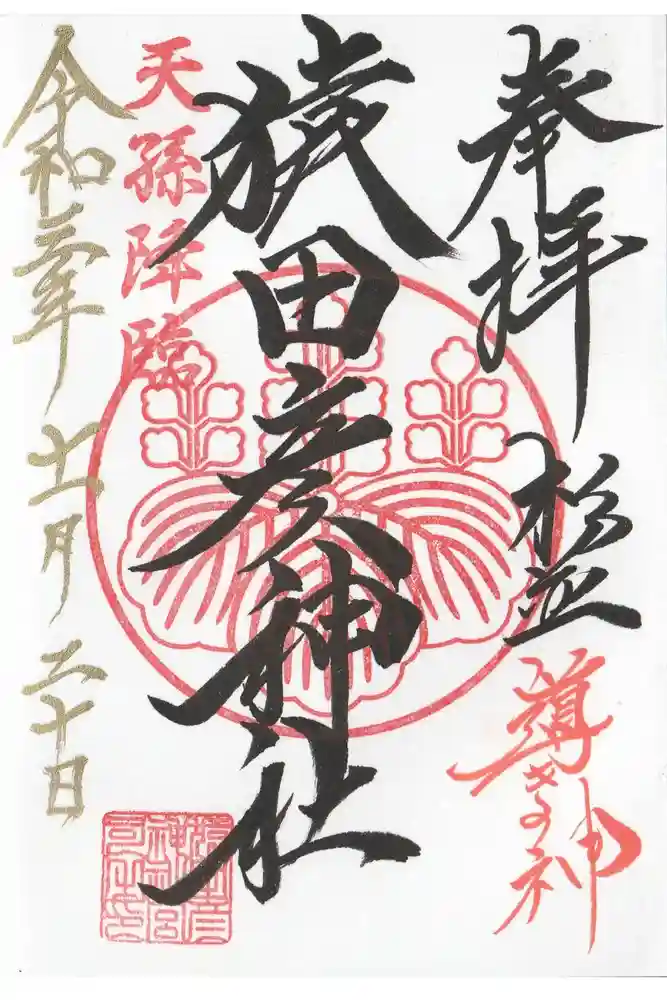 奉拝
杉並
導きの神
猿田彦神社
天孫降臨
令和二年
十一月
二十日